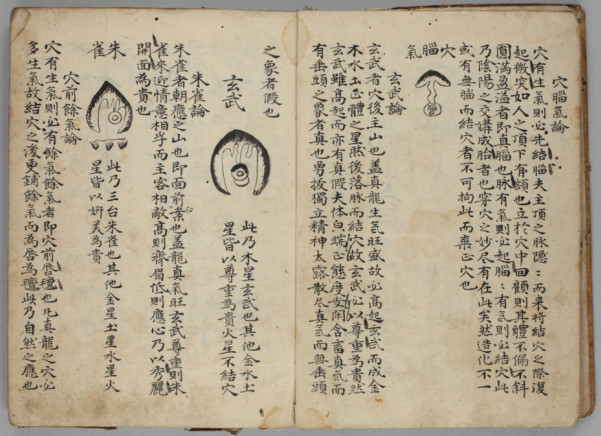 穴腦氣論
穴有生氣則必先結腦夫主頂之脉隱〻而来将結穴之際復
起微突如人之頂下有額也立於穴中回顧則其軆不偏不斜
圓滿盈溢者即真腦也脉有氣則必起腦〻有氣則必結穴此
乃陰陽之交媾成胎者也穿穴之妙尽有在此矣然造化不一
或有無腦而結穴者不可拘此而棄正穴也
穴
腦
氣
玄武論
玄武者穴後主山也盖真龍生氣旺盛故必高起玄武而成金
木水土正軆之星然後落脉而結穴故玄武必以尊重為貴然
玄武雖高起而亦有真假夫体白端正態度安閑含畜真氣而
有垂頭之象者真也勇拔獨立精神太露散尽真氣而無垂頭
之象者假也
玄武
此乃木星玄武也其他金水土
星皆以尊重為貴火星不結穴
朱雀論
朱雀者朝應之山也即面前案也盖龍真氣旺玄武尊重則朱
雀來迎情意相孚而主客相敵高則齊眉低則應心乃以秀麗
開面為貴也
朱
雀
此乃三台朱雀也其他金星土星水星火
星皆以妍美為貴
穴前餘氣論
穴有生氣則必有餘氣餘氣者即穴前唇氊也凡真龍之穴必
多生氣故結穴之後更鋪餘氣而為唇為氊此乃自然之應也